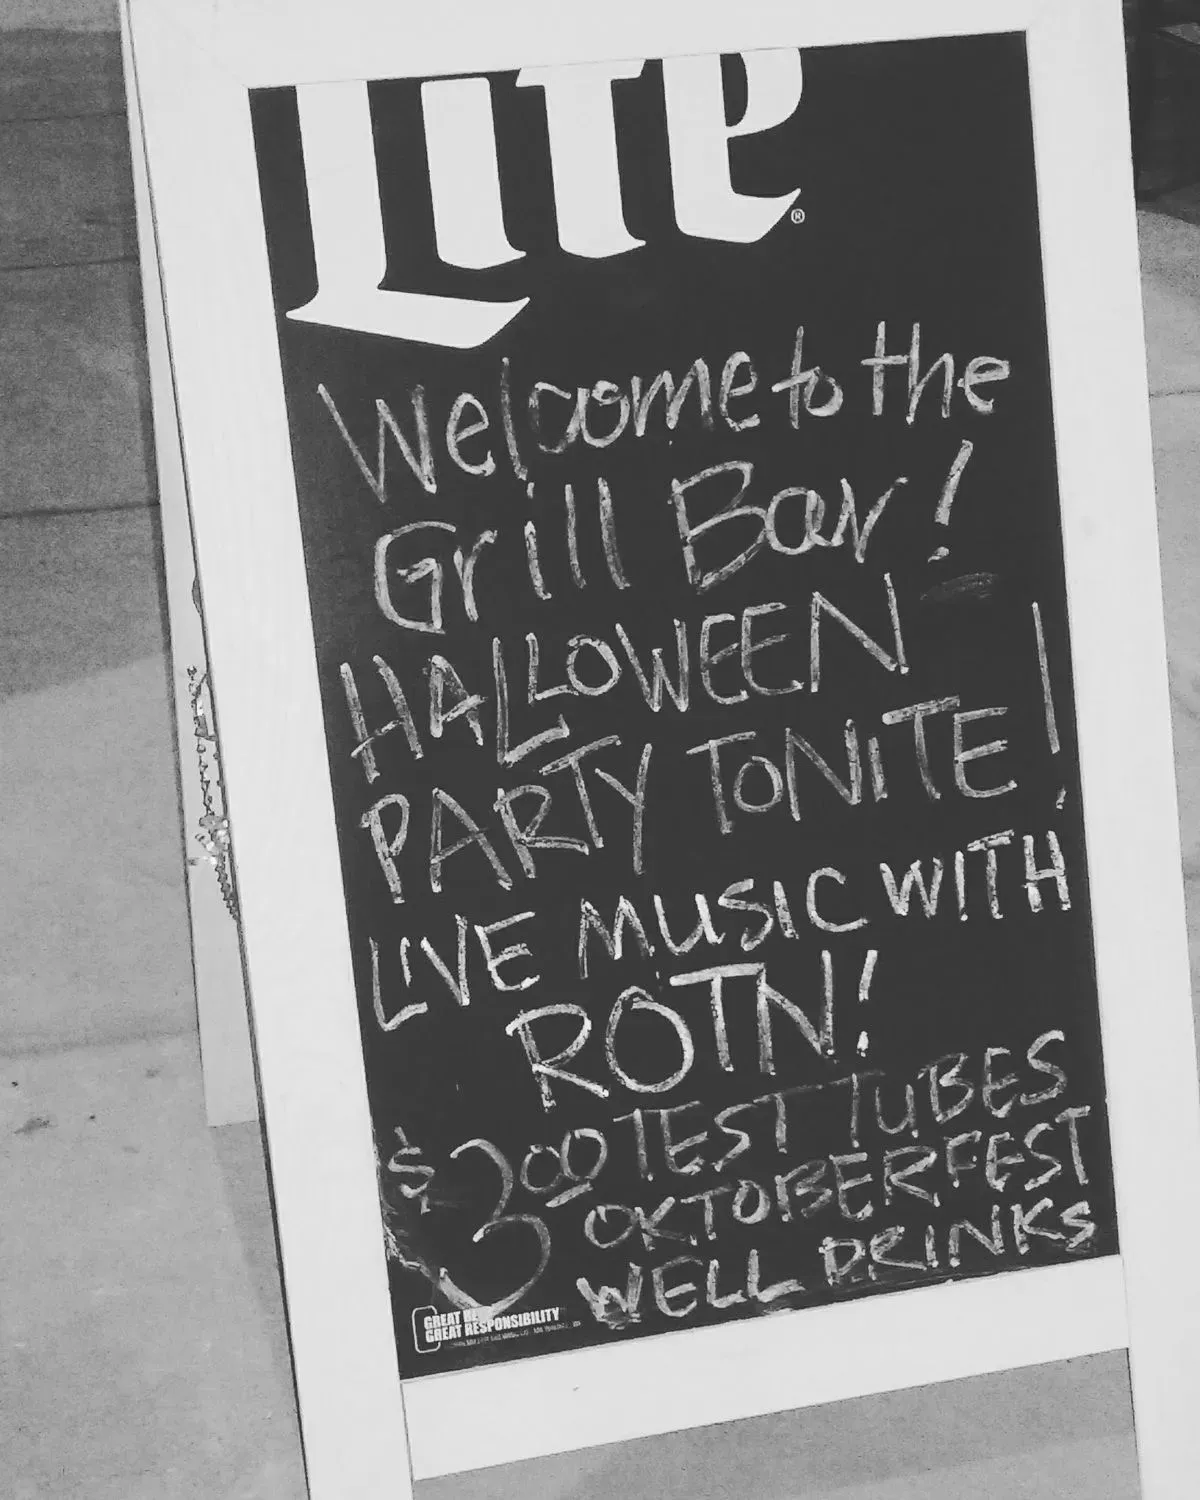 Lite®
Welcome to the
Grill Bar!
HALLOWEEN
PARTY TONITE!
LIVE MUSIC WITH
ROTN!
$3.00 TEST TUBES
OKTOBERFEST
WELL DRINKS
GREAT
GREAT RESPONSIBILITY